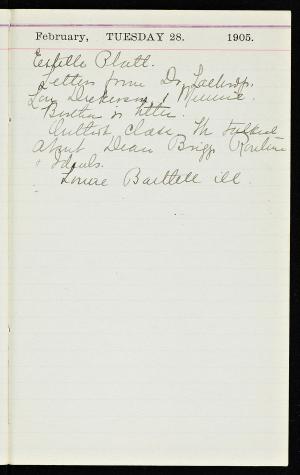 February, TUESDAY 28. 1905.
Estelle Platt.
Letters from Dr. Lathrop,
Lou Dickinson & Minnie.
Brother is better.
Culture class. We talked
about Dean Briggs Routine
& Ideals.
Louise Bartlett ill.